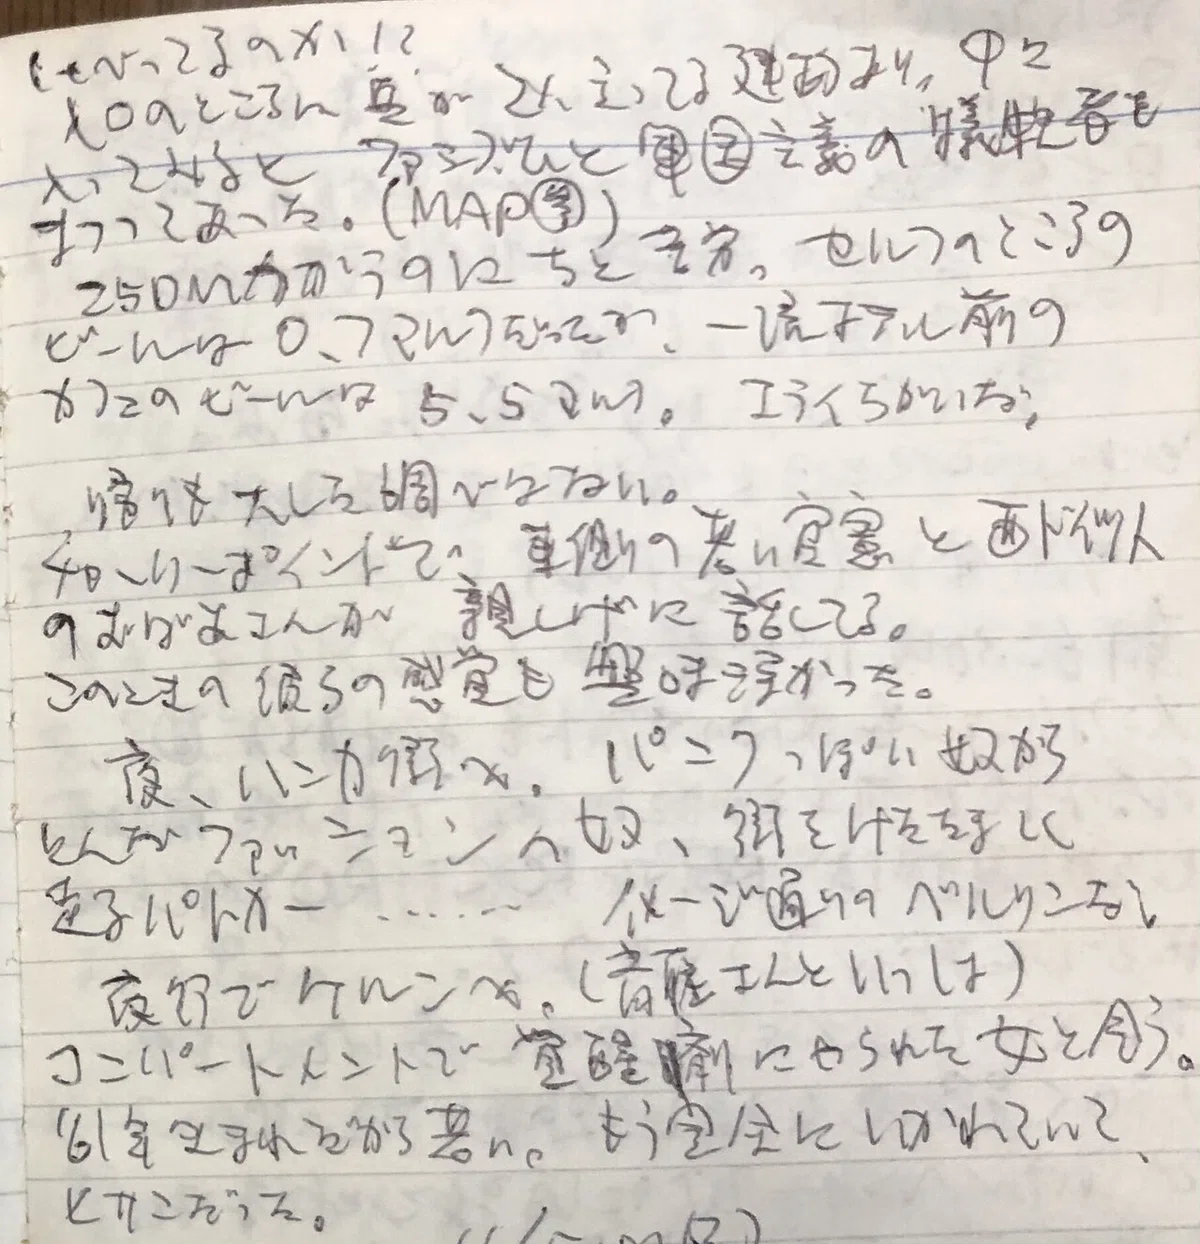 しゃべってるのかい!?
入口のところに兵が2人立ってる建物あり。中に
入ってみるとファシズムと軍国主義の犠牲者を
まつってあった。(MAP㊫)
25DM使うのにちと苦労。セルフのところの
ビールは0.7マルクだったが、一流ホテル前の
カフェのビールは5.5マルク。エライちがいだ。
帰りも大した調べはない。
チャーリーポイントで、東側の若い官憲と西ドイツ人
のおばあさんが親しげに話してる。
このときの彼らの感覚も興味深かった。
夜、ハンカ街へ。パンクっぽい奴から
とんだファッションの奴、街をけたたましく
走るパトカー ……… イメージ通りのベルリンだ。
夜行でケルンへ。(斉藤さんといっしょ)
コンパートメントで覚醒剤にやられた女と会う。
'61年生まれだから若い。もう完全にいかれていて、
ヒサンだった。